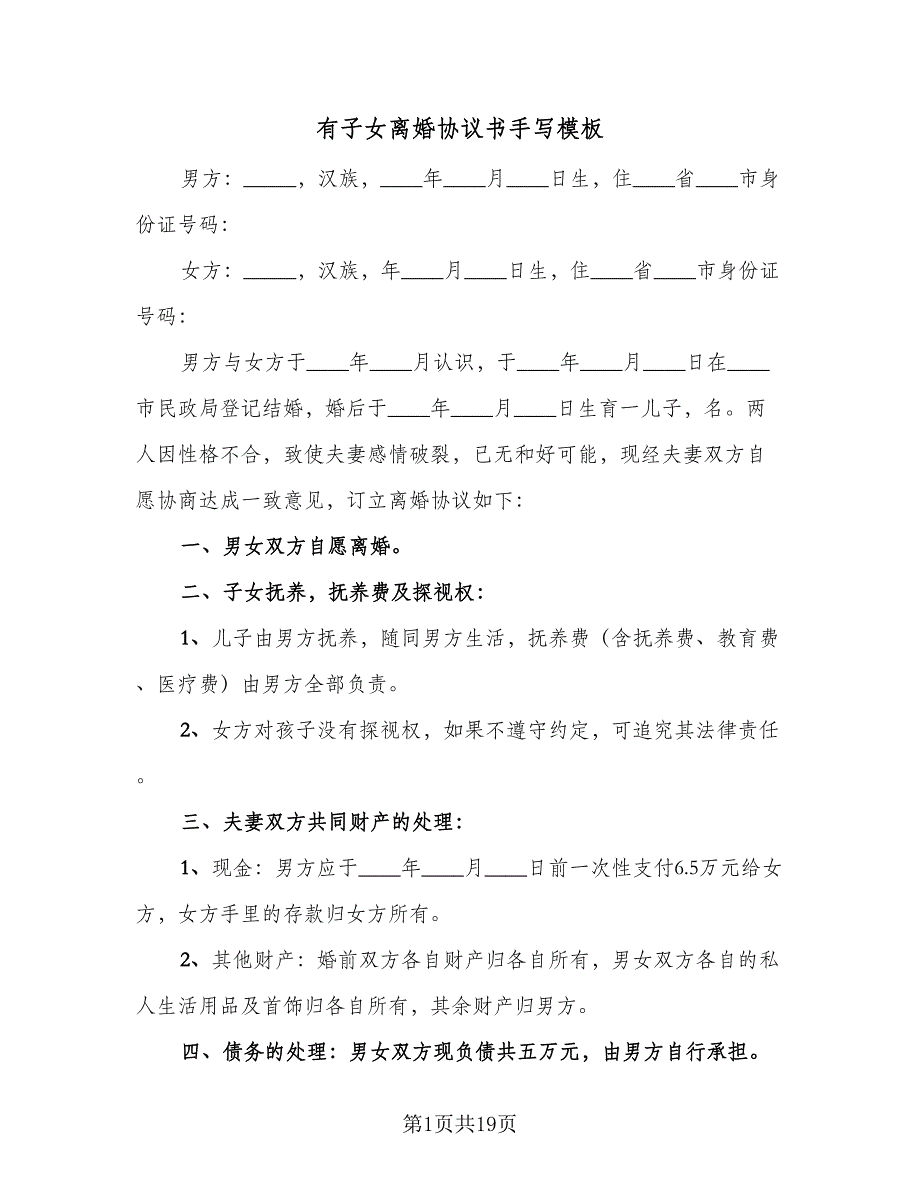 有子女离婚协议书手写模板
男方：_____，汉族，____年____月____日生，住____省____市身
份证号码：
女方：_____，汉族，年____月____日生，住____省____市身份证
号码：
男方与女方于____年____月认识，于____年____月____日在____
市民政局登记结婚，婚后于____年____月____日生育一儿子，名。两
人因性格不合，致使夫妻感情破裂，已无和好可能，现经夫妻双方自
愿协商达成一致意见，订立离婚协议如下：
一、男女双方自愿离婚。
二、子女抚养，抚养费及探视权：
1、儿子由男方抚养，随同男方生活，抚养费（含抚养费、教育费
、医疗费）由男方全部负责。
2、女方对孩子没有探视权，如果不遵守约定，可追究其法律责任
。
三、夫妻双方共同财产的处理：
1、现金：男方应于____年____月____日前一次性支付6.5万元给女
方，女方手里的存款归女方所有。
2、其他财产：婚前双方各自财产归各自所有，男女双方各自的私
人生活用品及首饰归各自所有，其余财产归男方。
四、债务的处理：男女双方现负债共五万元，由男方自行承担。
第1页共19页